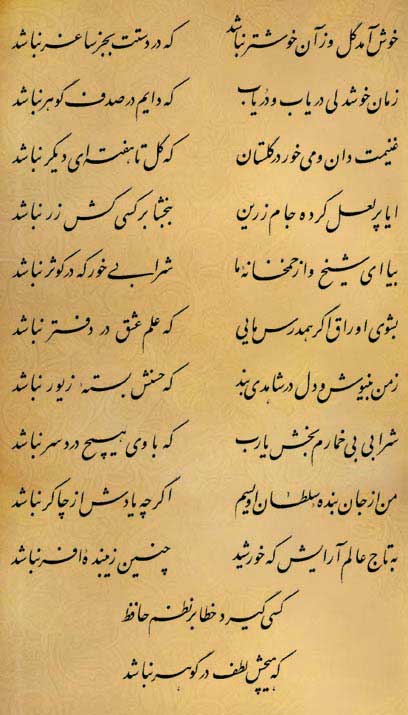 خوش آمد گل وز آن خوشتر نباشد که در دستت بجز ساغر نباشد
زمان خوشدلی دریاب و دُریاب که دایم در صدف گوهر نباشد
غنیمت دان و می خور در گلستان که گل تا هفته‌ای دیگر نباشد
ایا پرلعل کرده جام زرین ببخشا بر کسی کش زر نباشد
بیا ای شیخ و از خمخانهٔ ما شرابی خور که در کوثر نباشد
بشوی اوراق اگر همدرس مایی که علم عشق در دفتر نباشد
ز من بنیوش و دل در شاهدی بند که حسنش بستهٔ زیور نباشد
شرابی بی خمارم بخش یارب که با وی هیچ دردسر نباشد
من از جان بندهٔ سلطان اویسم اگرچه یادش از چاکر نباشد
به تاج عالم آرایش که خورشید چنین زیبندهٔ افسر نباشد
کسی گیرد خطا بر نظم حافظ
که هیچش لطف در گوهر نباشد